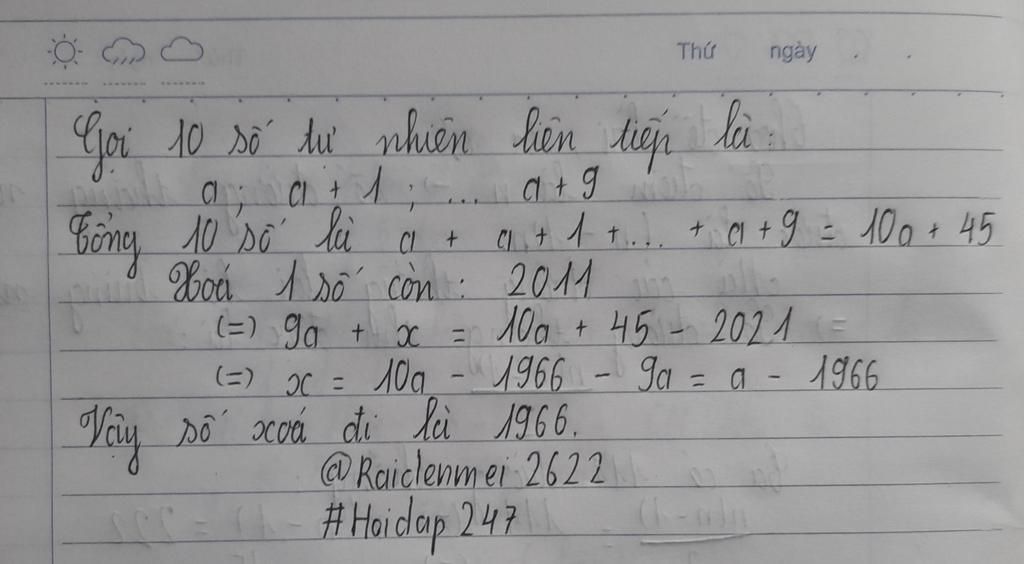 Thứ ngày . .
Gọi 10 số tự nhiên liên tiếp là:
a; a + 1; ... a + 9
Tổng 10 số là a + a + 1 +... + a + 9 = 10a + 45
Xoá 1 số còn: 2011
(=) 9a + x = 10a + 45 - 2021
(=) x = 10a - 1966 - 9a = a - 1966
Vậy số xoá đi là 1966.
@Raidenmei 2622
#Hoidap 247